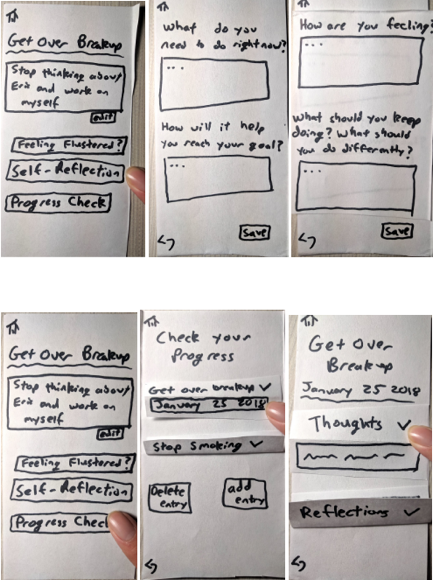 Get Over Breakup
Stop thinking about
Eric and work on
myself
edit
Feeling Flustered?
Self-Reflection
Progress Check
What do you
need to do right now?
...
How will it help
you reach your goal?
...
Save
How are you feeling?
...
What should you keep
doing? What should
you do differently?
...
Save
Get Over Breakup
Stop thinking about
Eric and work on
myself
edit
Feeling Flustered?
Self-Reflection
Progress Check
Check your
Progress
Get over breakup
January 25 2018
Stop Smoking
Delete
entry
add
entry
Get Over
Breakup
January 25 2018
Thoughts
Reflections